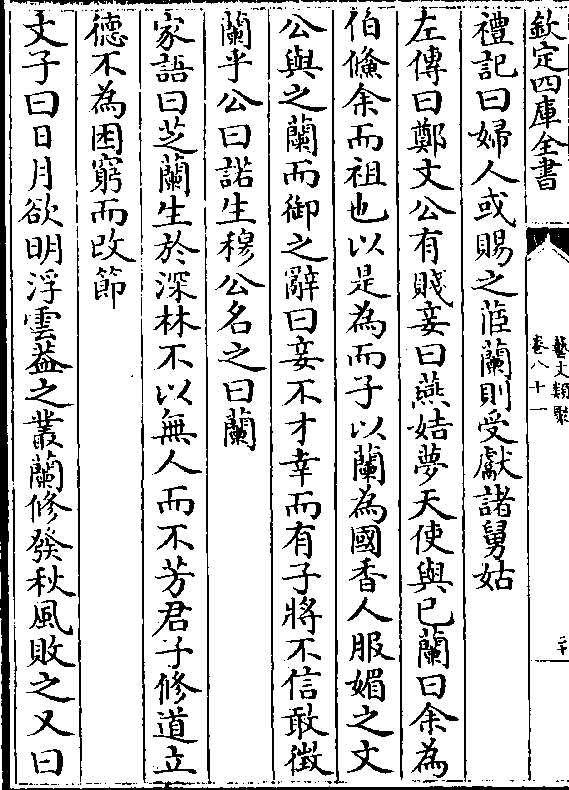 欽定四庫全書
藝文類聚
卷八十一
二十
禮記曰婦人或賜之茝蘭則受獻諸舅姑
左傳曰鄭文公有賤妾曰燕姞夢天使與已蘭曰余為
伯鯈余而祖也以是為而子以蘭為國香人服媚之文
公與之蘭而御之辭曰妾不才幸而有子將不信敢徴
蘭乎公曰諾生穆公名之曰蘭
家語曰芝蘭生於深林不以無人而不芳君子修道立
德不為困窮而改節
文子曰日月欲明浮雲葢之叢蘭修發秋風敗之又曰